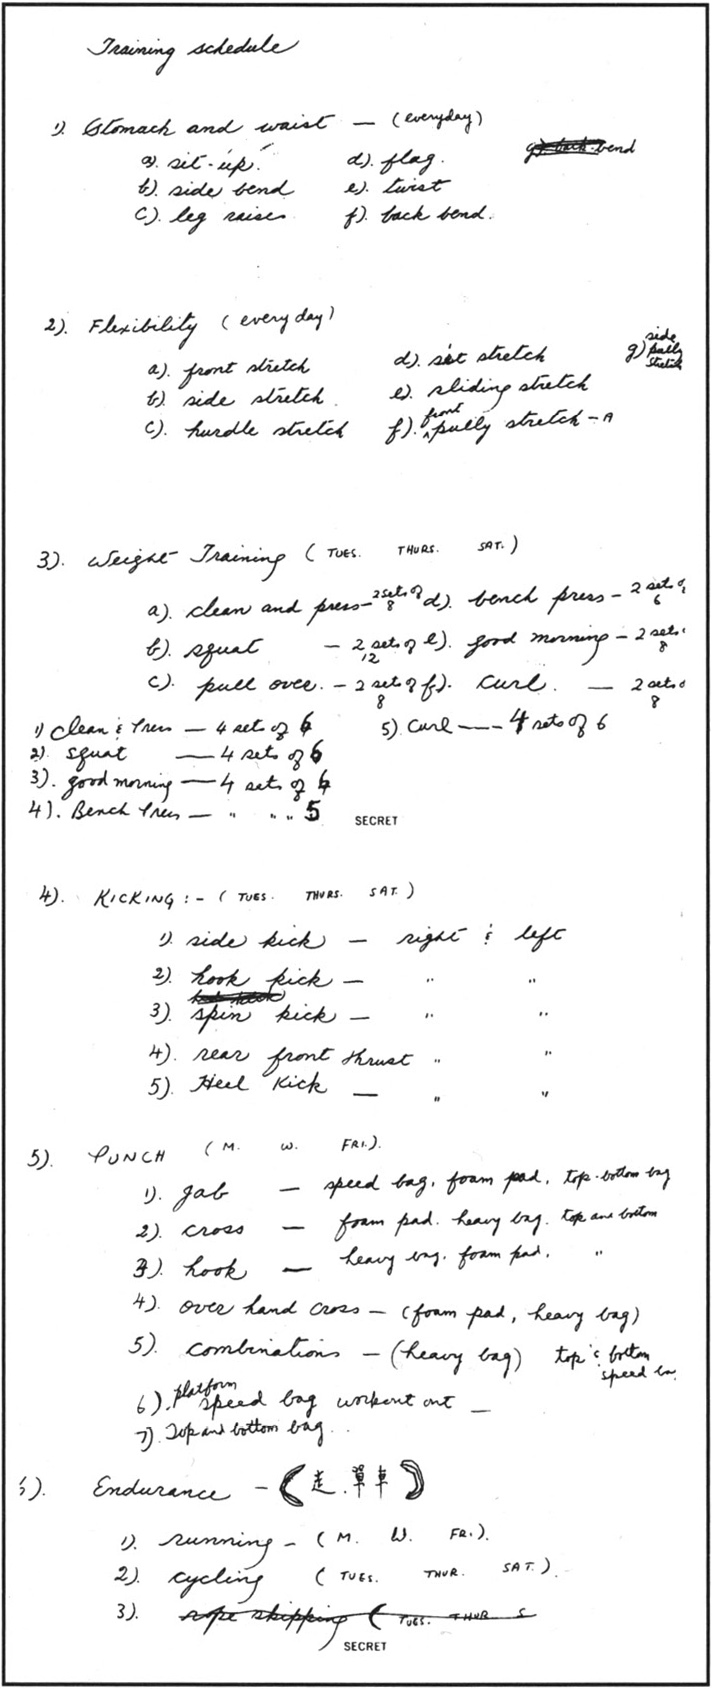 Training schedule
1). Stomach and waist — (everyday)
a). sit-up. d). flag. g). back bend
b). side bend e). twist
c). leg raises f). back bend.
2). Flexibility (everyday)
a). front stretch d). sit stretch g) side pully stretch
b). side stretch e). sliding stretch
c). hurdle stretch f). front pully stretch – A
3). Weight Training (TUES. THURS. SAT.)
a). clean and press – 2 sets of 8 d). bench press – 2 sets of 6
b). squat – 2 sets of 12 e). good morning – 2 sets 8
c). pull over. – 2 sets of 8 f). curl. — 2 sets o 8
1) Clean & Press — 4 sets of 6 5). Curl —— 4 sets of 6
2). squat —— 4 sets of 6
3). good morning — 4 sets of 6
4). Bench Press — " " " 5
SECRET
4). KICKING :- (TUES. THURS. SAT.)
1). side kick — right & left
2). hook kick — " "
3). spin kick — " "
4). rear front thrust " "
5). Heel Kick — " "
5). PUNCH (M. W. FRI.).
1). jab — speed bag, foam pad, top-bottom bag
2). cross — foam pad. heavy bag. top and bottom
3). hook — heavy bag. foam pad. "
4). over hand cross – (foam pad, heavy bag)
5). combinations – (heavy bag) top & bottom
speed ba
6). platform speed bag workout out —
7). Top and bottom bag.
). Endurance – (走.單車)
1). running – (M. W. FR.).
2). cycling (TUES. THUR. SAT.).
3). rope skipping (TUES. THUR S
SECRET